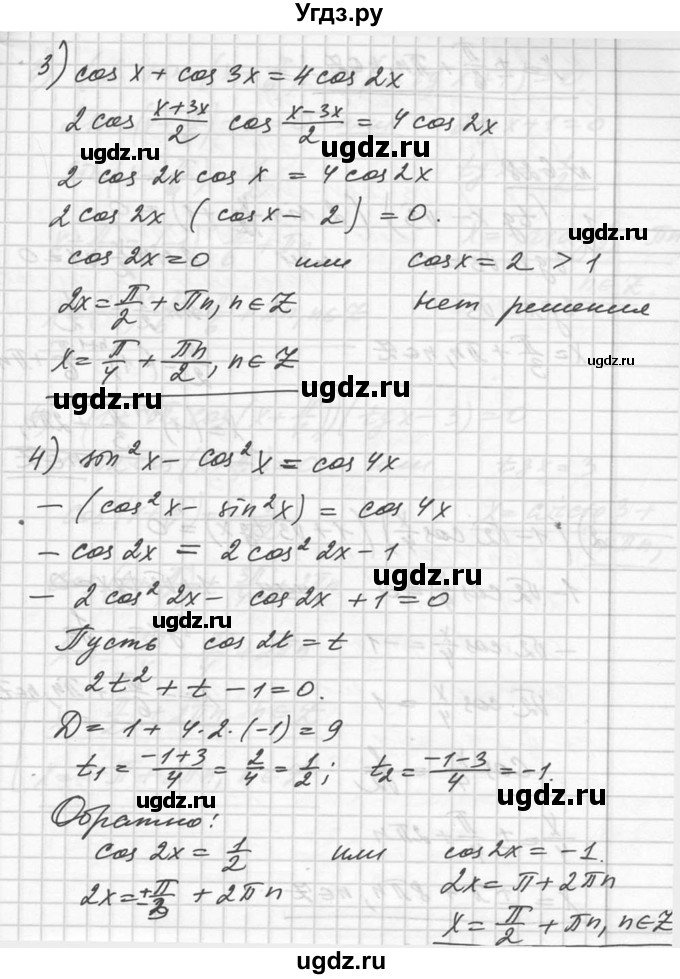 Угдз.ру
3) cos x + cos 3x = 4 cos 2x
2 cos (x+3x)/2 cos (x-3x)/2 = 4 cos 2x
ugdz.ru
ugdz.ru
2 cos 2x cos x = 4 cos 2x
2 cos 2x (cos x - 2) = 0.
ugdz.ru
cos 2x = 0 или cos x = 2 > 1
2x = π/2 + πn, n∈Z нет решения
x = π/4 + πn/2, n∈Z
ugdz.ru
ugdz.ru
ugdz.ru
4) sin²x - cos²x = cos 4x
- (cos²x - sin²x) = cos 4x
- cos 2x = 2 cos² 2x - 1
ugdz.ru
- 2 cos² 2x - cos 2x + 1 = 0
ugdz.ru
Пусть cos 2x = t
2t² + t - 1 = 0.
D = 1 + 4·2·(-1) = 9
t₁ = (-1+3)/4 = 2/4 = 1/2; t₂ = (-1-3)/4 = -1.
ugdz.ru
ugdz.ru
Обратно:
cos 2x = 1/2 или cos 2x = -1.
2x = ±π/3 + 2πn 2x = π + 2πn
x = π/2 + πn, n∈Z
ugdz.ru
ugdz.ru